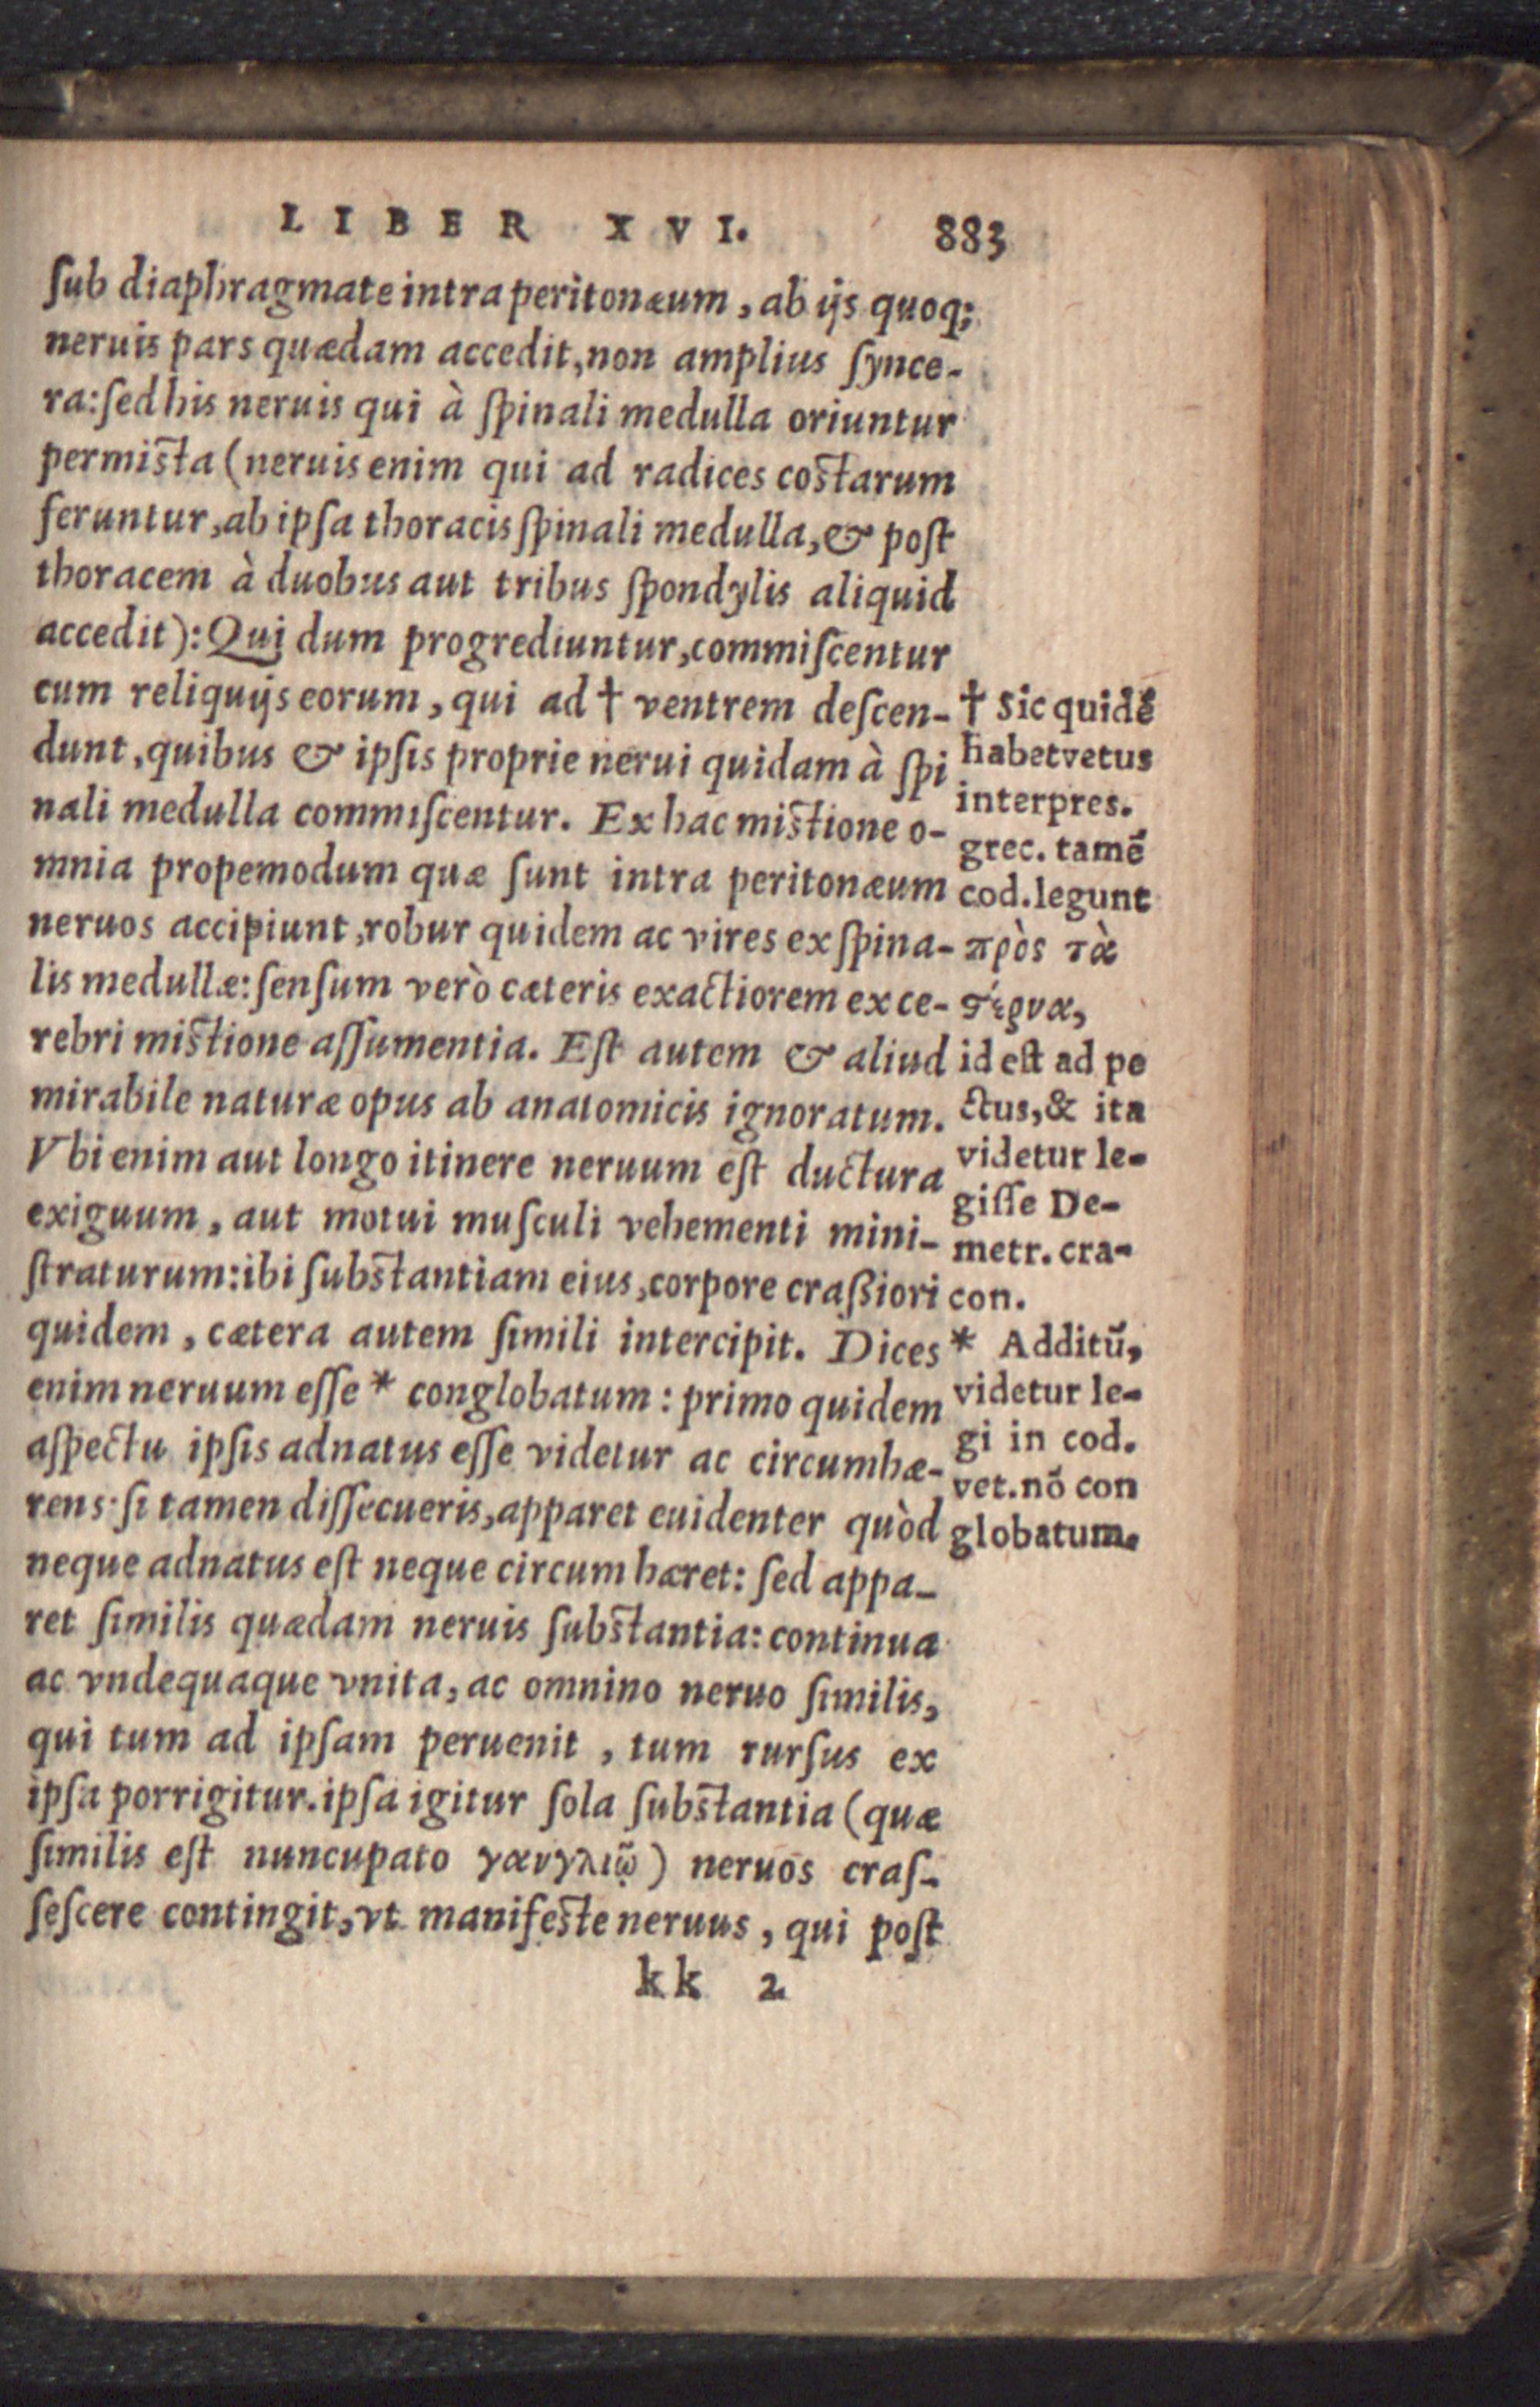 LIBER XVI. 883
ſub diaphragmate intra peritonæum, ab ijs quoq;
neruis pars quædam accedit, non amplius ſynce-
ra: ſed his neruis qui à ſpinali medulla oriuntur
permiſta (neruis enim qui ad radices coſtarum
feruntur, ab ipſa thoracis ſpinali medulla, & poſt
thoracem à duobus aut tribus ſpondylis aliquid
accedit): Qui dum progrediuntur, commiſcentur
cum reliquijs eorum, qui ad † ventrem deſcen-
dunt, quibus & ipſis proprie nerui quidam à ſpi
nali medulla commiſcentur. Ex hac miſtione o-
mnia propemodum quæ ſunt intra peritonæum
neruos accipiunt, robur quidem ac vires ex ſpina-
lis medullæ: ſenſum verò cæteris exactiorem ex ce-
rebri miſtione aſſumentia. Eſt autem & aliud
mirabile naturæ opus ab anatomicis ignoratum.
Vbi enim aut longo itinere neruum eſt ductura
exiguum, aut motui muſculi vehementi mini-
ſtraturum: ibi ſubſtantiam eius, corpore craßiori
quidem, cætera autem ſimili intercipit. Dices
enim neruum eſſe * conglobatum: primo quidem
aſpectu ipſis adnatus eſſe videtur ac circumhæ-
rens: ſi tamen diſſecueris, apparet euidenter quòd
neque adnatus eſt neque circumhæret: ſed appa-
ret ſimilis quædam neruis ſubſtantia: continua
ac vndequaque vnita, ac omnino neruo ſimilis,
qui tum ad ipſam peruenit, tum rurſus ex
ipſa porrigitur. ipſa igitur ſola ſubſtantia (quæ
ſimilis eſt nuncupato γανγλιῶ) neruos craſ-
ſeſcere contingit, vt manifeſte neruus, qui poſt
kk 2
† Sic quidẽ
habet vetus
interpres.
grec. tamẽ
cod. legunt
πρὸς τὰ
ϛέρνα,
id eſt ad pe
ctus, & ita
videtur le-
giſſe De-
metr. cra-
con.
* Additũ,
videtur le-
gi in cod.
vet. nõ con
globatum.